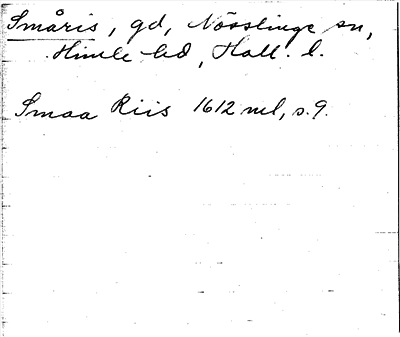 Småris, gd, Nösslinge sn,
Himle hd, Hall. l.
Smaa Riis 1612 ml, s. 9.